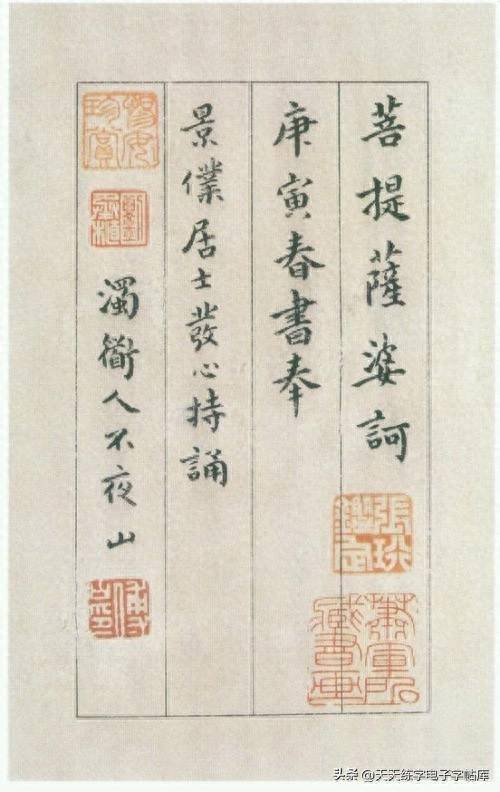 菩提薩婆訶
庚寅春書奉
景僕居士發心持誦
濁衜人不夜山
頭条 @天天练字电子字帖库